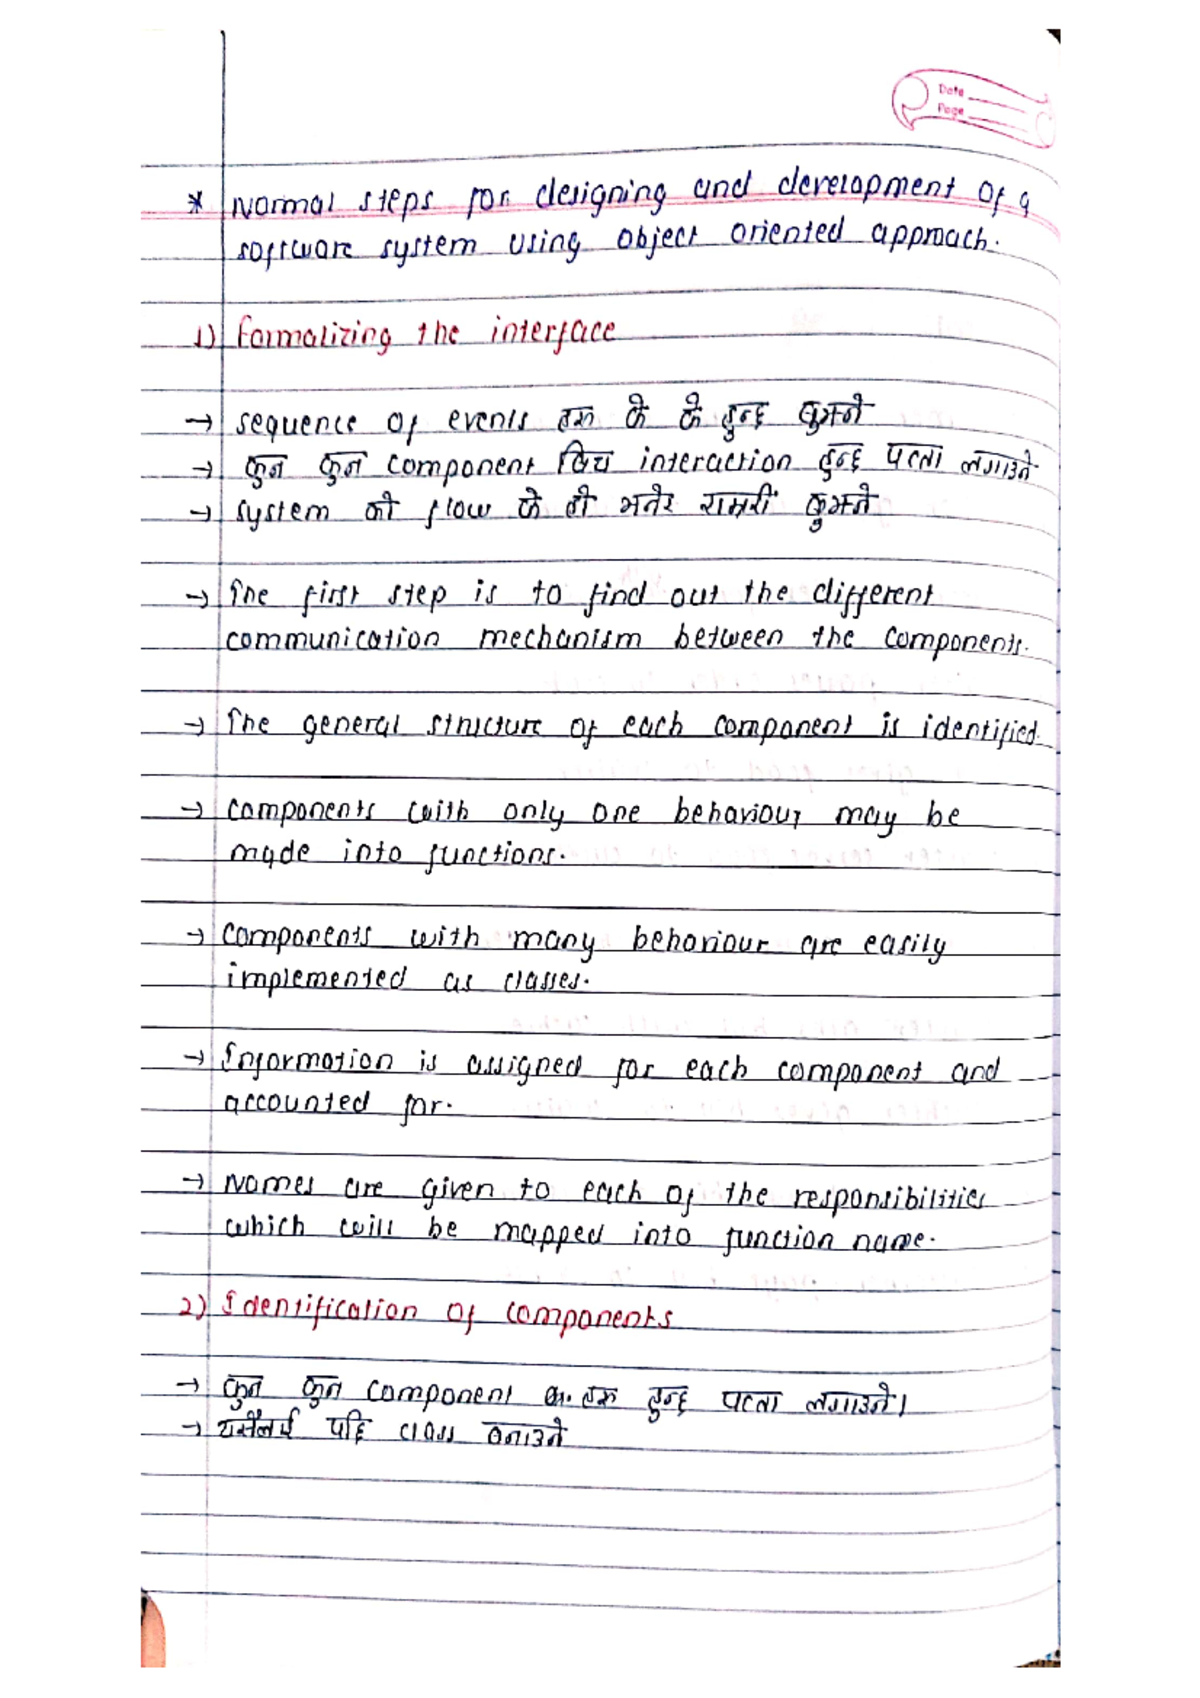 Date
Page
* Normal steps for designing and development of a
software system using object oriented approach.
1) Formalizing the interface
→ sequence of events हरू के के हुन्छ बुझ्ने
→ कुन कुन component बिच interaction हुन्छ पत्ता लगाउने
→ system को flow के हो भनेर राम्ररी बुझ्ने
→ The first step is to find out the different
communication mechanism between the components.
→ The general structure of each component is identified.
→ components with only one behaviour may be
made into functions.
→ components with many behaviour are easily
implemented as classes.
→ Information is assigned for each component and
accounted for.
→ Names are given to each of the responsibilities
which will be mapped into function name.
2) Identification of components
→ कुन कुन component हरू हुन्छ पत्ता लगाउने।
→ यसैलाई पछि class बनाउने